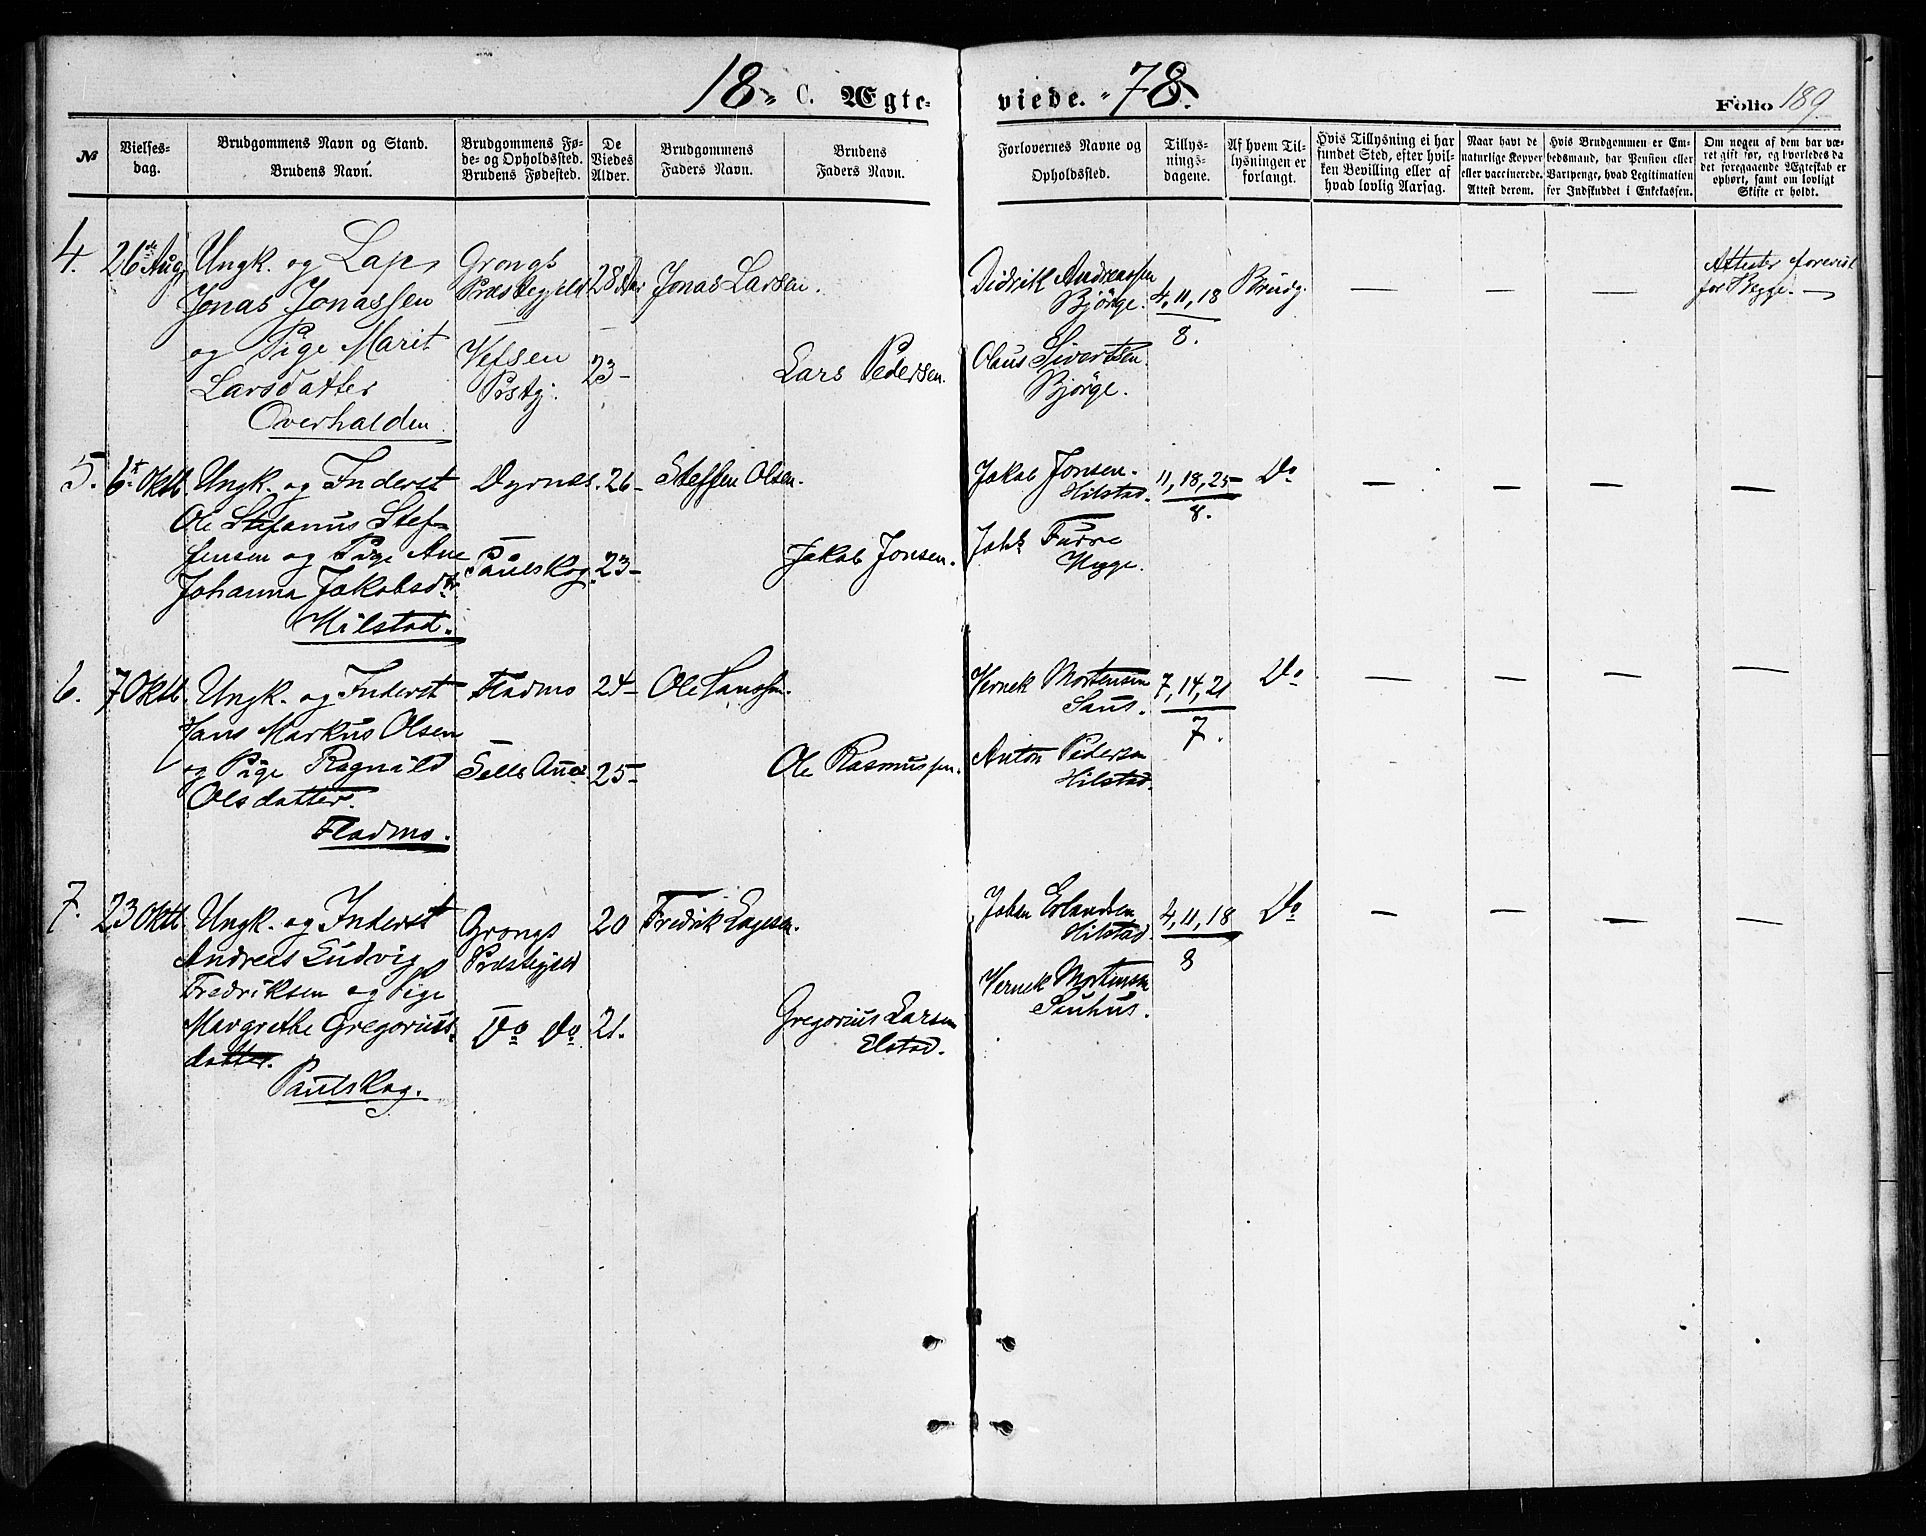 18 C. Ægte-
viede. 78.
Folio 189.
№
Vielses-
dag.
Brudgommens Navn og Stand.
Brudens Navn.
Brudgommens Fø-
de- og Opholdssted.
Brudens Fødested.
De
Viedes
Alder.
Brudgommens
Faders Navn.
Brudens
Faders Navn.
Forlovernes Navne og
Opholdssted.
Tillys-
nings-
dagene.
Af hvem Til-
lysningen er
forlangt.
Hvis Tillysning ei har
fundet Sted, efter hvil-
ken Bevilling eller af
hvad lovlig Aarsag.
Naar havt de
naturlige Kopper
eller vaccinerede.
Attest derom.
Hvis Brudgommen er Em-
bedsmand, har Pension eller
Vartpenge, hvad Legitimation
for Indskuddet i Enkekassen.
Om nogen af dem har væ-
ret gift før, og hvorledes da
det foregaaende Ægteskab er
ophørt, samt om lovligt
Skifte er holdt.
4.
26de Aug
Ungk. og Lap,
Jonas Jonassen
og Pige Marit
Larsdatter
Overhalden
Grongs
Præstegjeld
Vefsen
Prstgj.
28 Aar
23 -
Jonas Larsen.
Lars Pedersen.
Didrik Andreassen
Bjørge.
Olaus Sivertsen
Bjørge.
4, 11, 18
8.
Brudg.
—
—
—
Attester forevist
for Begge. —
5.
6t Oktb.
Ungk. og Inderst
Ole Stefanus Stef-
fensen og Pige Ane
Johanna Jakobsdtr
Hilstad.
Dyrnes.
Paulskog.
26 -
23 -
Steffen Olsen.
Jakob Jonsen.
Jakob Jonsen.
Hilstad.
Johs Furre
Hygge.
11, 18, 25
8.
Do
—
—
—
—
6.
7 Oktb.
Ungk. og Inderst
Hans Markus Olsen
og Pige Ragnild
Olsdatter.
Fladmo.
Fladmo
24 -
25 -
Ole Hanssen.
Ole Rasmussen.
Vernek Mortensen
Anton Pedersen
Hilstad.
7, 14, 21
7.
Do
—
—
—
—
7.
23 Oktb.
Ungk. og Inderst
Andreas Ludvig
Fredriksen og Pige
Margrethe Gregorius-
datter.
Paulskog.
Grongs
Præstegjeld
Do Do
20
21.
Fredrik
Gregorius Larsen
Elstad.
Johan Erlandsen
Hilstad.
Vernek Mortensen
4, 11, 18
8
Do
—
—
—
—